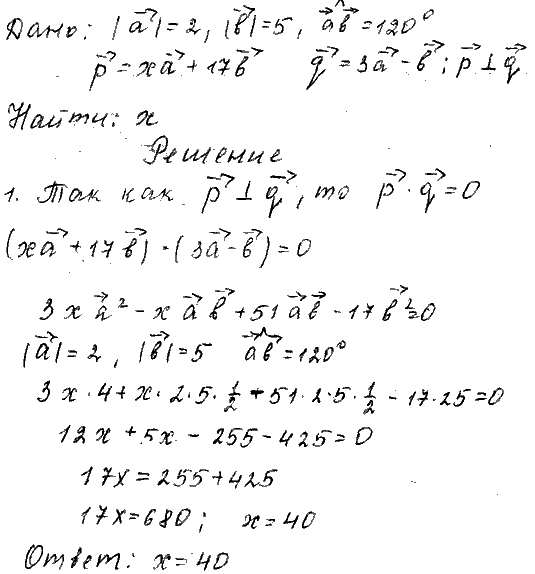 Дано: |a⃗|=2, |b⃗|=5, a⃗^b⃗=120°
p⃗=xa⃗+17b⃗ q⃗=3a⃗-b⃗; p⃗⊥q⃗
Найти: x
Решение
1. Так как p⃗⊥q⃗, то p⃗·q⃗=0
(xa⃗+17b⃗)·(3a⃗-b⃗)=0
3xa⃗²-xa⃗b⃗+51a⃗b⃗-17b⃗²=0
|a⃗|=2, |b⃗|=5 a⃗^b⃗=120°
3x·4+x·2·5·1/2-51·2·5·1/2-17·25=0
12x+5x-255-425=0
17x=255+425
17x=680; x=40
Ответ: x=40